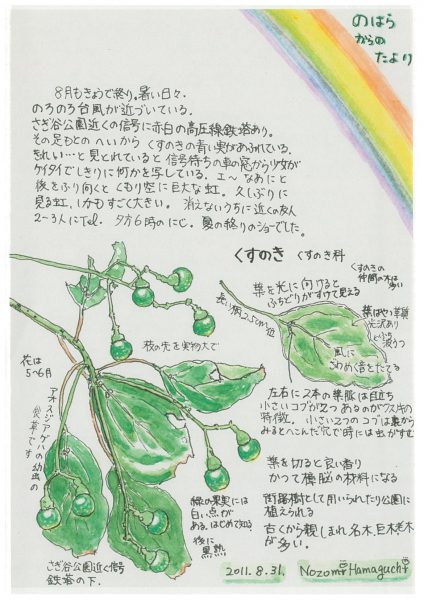 のはら
からの
たより
8月もきょうで終り。暑い日々。
のろのろ台風が近づいている。
さぎ谷公園近くの信号に赤白の高圧線鉄塔あり。
その足もとの へいから くすのきの青い実があふれている。
きれい…と見とれていると 信号待ちの車の窓から少女が
ケイタイでしきりに何かを写している。エ〜なあにと
後をふり向くと くもり空に巨大な虹。久しぶりに
見る虹、しかもすごく大きい。消えないうちに近くの友人
2~3人にTel. 夕方6時のにじ。夏の終りのショーでした。
くすのき くすのき科
くすのきの
仲間の木は
多い
葉を光に向けると
ふちどりがすけて見える
長い柄 2.5cm位
葉はやゝ革質
光沢あり
ふちは
波うつ
風に
さわめく音をたてる
枝の先を実物大で
花は
5~6月
アオスジアゲハの幼虫の
食草です
左右に2本の葉脈は目立ち
小さいコブが2つあるのがクスノキの
特徴。小さい2つのコブは裏から
みるとへこんだ穴で時には虫がすむ
葉を切ると良い香り
かつて樟脳の材料になる
街路樹として用いられたり公園に
植えられる
古くから親しまれ、名木、巨木老木
が多い。
緑の果実には
白い点が
ある。はじめて知る
後に
黒熟
さぎ谷公園近く信号
鉄塔の下.
2011.8.31.
Nozomi Hamaguchi